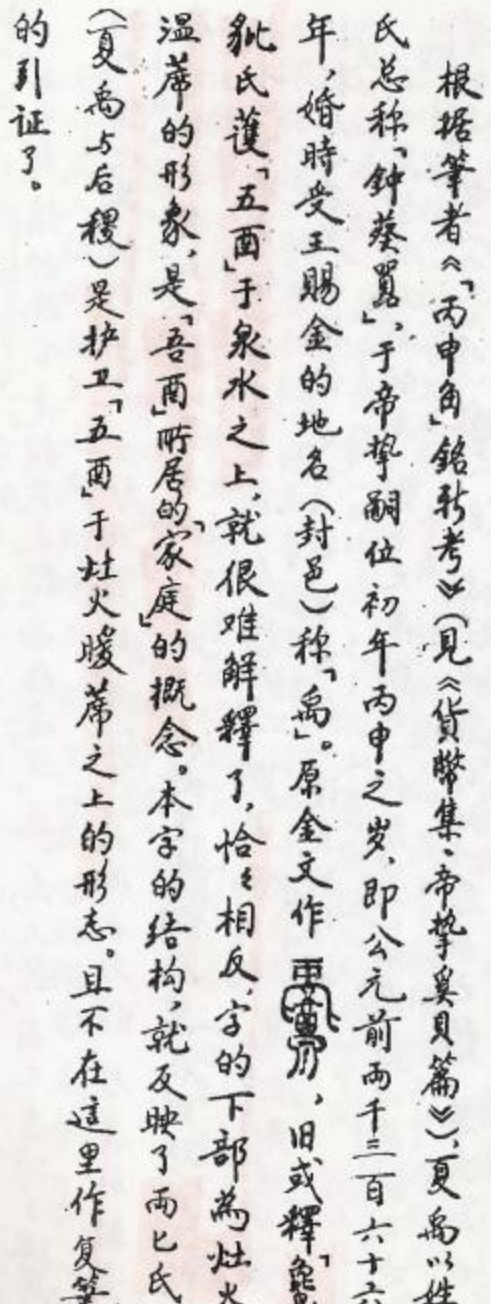 根据筆者《「丙申角」銘新考》(見《貨幣集·帝挚奚貝篇》),夏禹以姓
氏总称「钟葵畧」,于帝挚嗣位初年丙申之岁,即公元前两千三百六十六
年,婚時受王賜金的地名(封邑)称「禹」。原金文作,旧或釋「
貔氏蒦「五酉」于泉水之上,就很难解釋了,恰々相反,字的下部為灶火
温蓆的形象,是「吾酉」所居的「家庭」的概念。本字的结构,就反映了两匕氏
(夏禹与后稷)是护卫「五酉」于灶火暖蓆之上的形志。且不在這里作复筆
的引证了。